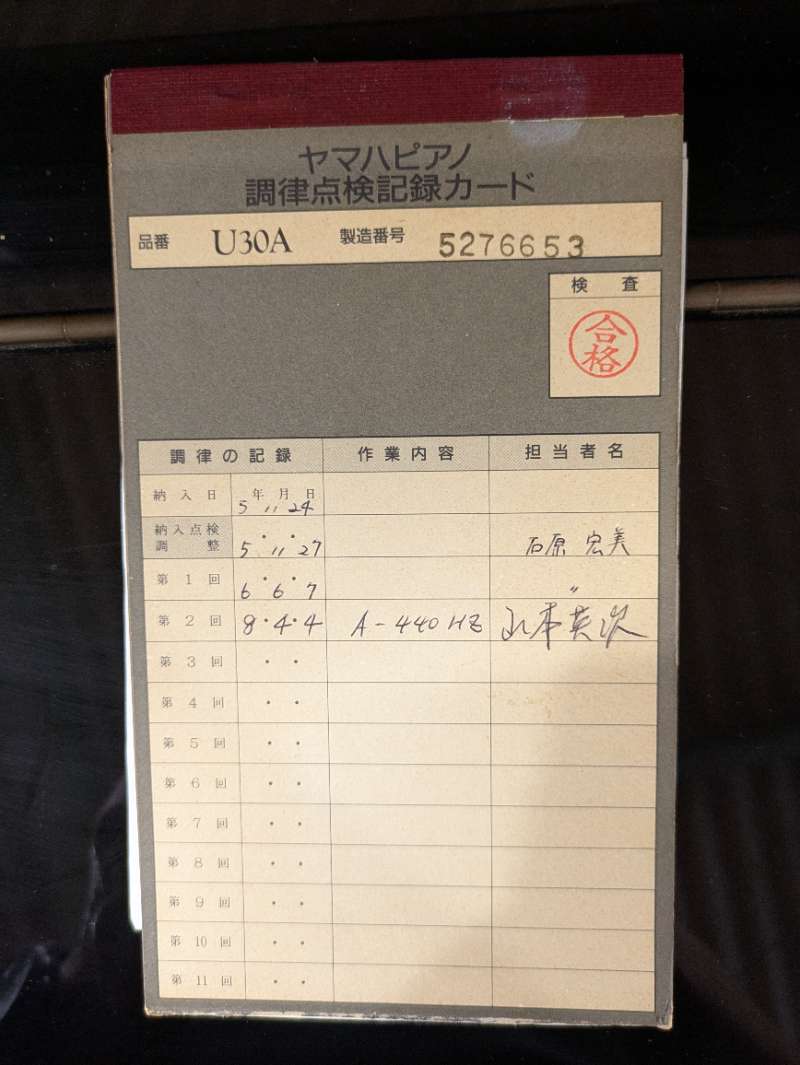 ヤマハピアノ
調律点検記録カード
品番 U30A 製造番号 5276653
検査
合格
調律の記録 作業内容 担当者名
納入日 年 月 日 5 11 24
納入点検調整 5・11・27 石原 宏美
第1回 6・6・7 〃
第2回 8・4・4 A-440HZ 山本英次
第3回 ・・
第4回 ・・
第5回 ・・
第6回 ・・
第7回 ・・
第8回 ・・
第9回 ・・
第10回 ・・
第11回 ・・